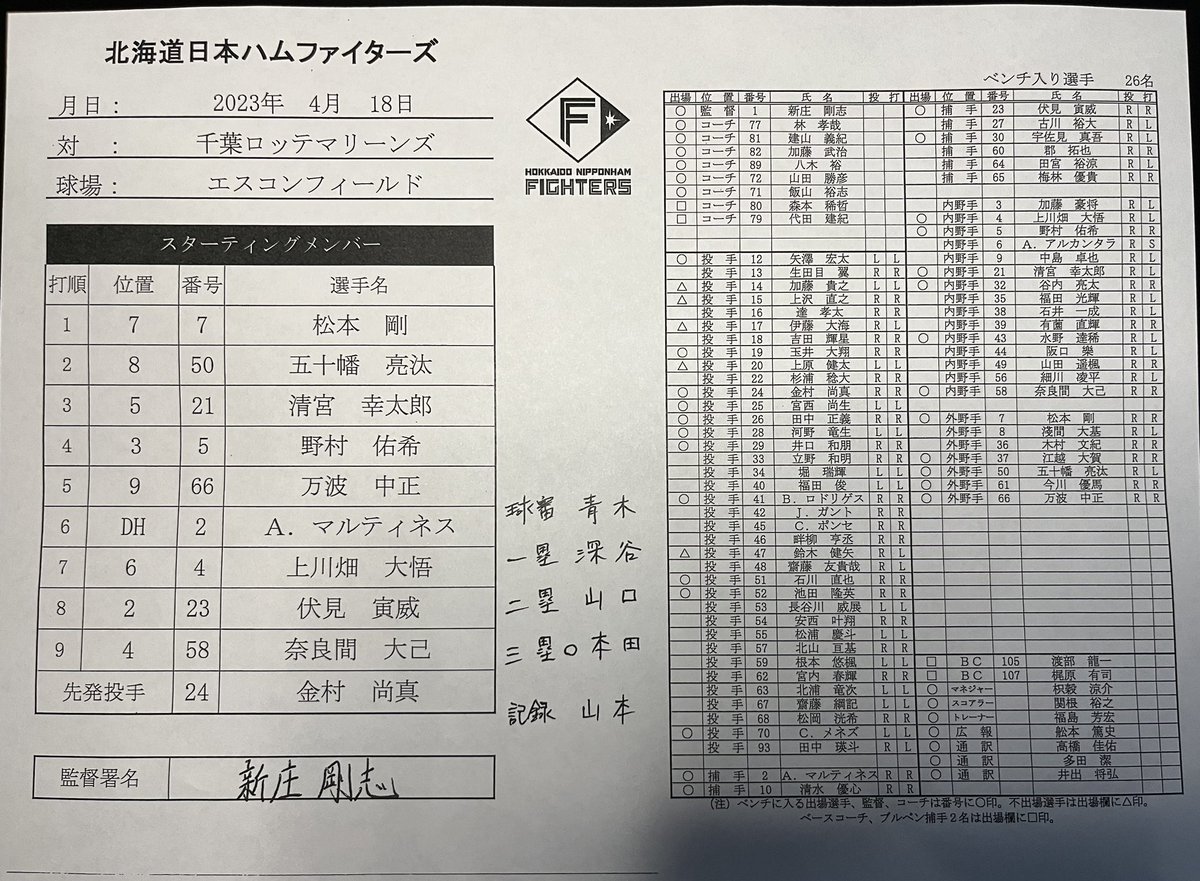 北海道日本ハムファイターズ
月日： 2023年 4月 18日
対 ： 千葉ロッテマリーンズ
球場： エスコンフィールド
F
HOKKAIDO NIPPONHAM
FIGHTERS
スターティングメンバー
打順 位置 番号 選手名
1 7 7 松本 剛
2 8 50 五十幡 亮汰
3 5 21 清宮 幸太郎
4 3 5 野村 佑希
5 9 66 万波 中正
6 DH 2 A．マルティネス
7 6 4 上川畑 大悟
8 2 23 伏見 寅威
9 4 58 奈良間 大己
先発投手 24 金村 尚真
監督署名 新庄 剛志
球審 青木
一塁 深谷
二塁 山口
三塁○本田
記録 山本
ベンチ入り選手 26名
出場 位置 番号 氏名 投 打
○ 監督 1 新庄 剛志
○ コーチ 77 林 孝哉
○ コーチ 81 建山 義紀
○ コーチ 82 加藤 武治
○ コーチ 89 八木 裕
○ コーチ 72 山田 勝彦
○ コーチ 71 飯山 裕志
□ コーチ 80 森本 稀哲
□ コーチ 79 代田 建紀
○ 投手 12 矢澤 宏太 L L
投手 13 生田目 翼 R R
△ 投手 14 加藤 貴之 L L
△ 投手 15 上沢 直之 R R
投手 16 達 孝太 R L
△ 投手 17 伊藤 大海 R L
投手 18 吉田 輝星 R R
○ 投手 19 玉井 大翔 R R
△ 投手 20 上原 健太 L L
投手 22 杉浦 稔大 R R
○ 投手 24 金村 尚真 R R
○ 投手 25 宮西 尚生 L L
○ 投手 26 田中 正義 R R
○ 投手 28 河野 竜生 L L
○ 投手 29 井口 和朋 R R
投手 33 立野 和明 R R
投手 34 堀 瑞輝 L L
投手 40 福田 俊 L L
○ 投手 41 B．ロドリゲス R R
投手 42 J．ガント R R
投手 45 C．ポンセ R R
投手 46 畔柳 亨丞 R R
△ 投手 47 鈴木 健矢 R L
投手 48 齋藤 友貴哉 R L
○ 投手 51 石川 直也 R R
○ 投手 52 池田 隆英 R R
投手 53 長谷川 威展 L L
投手 54 安西 叶翔 R R
投手 55 松浦 慶斗 L L
投手 57 北山 亘基 R R
投手 59 根本 悠楓 L L
投手 62 宮内 春輝 R R
投手 63 北浦 竜次 L L
投手 67 齋藤 綱記 L L
投手 68 松岡 洸希 R R
○ 投手 70 C．メネズ L L
投手 93 田中 瑛斗 R L
○ 捕手 2 A．マルティネス R R
○ 捕手 10 清水 優心 R R
出場 位置 番号 氏名 投 打
○ 捕手 23 伏見 寅威 R R
捕手 27 古川 裕大 R L
○ 捕手 30 宇佐見 真吾 R L
捕手 60 郡 拓也 R R
捕手 64 田宮 裕涼 R L
捕手 65 梅林 優貴 R R
内野手 3 加藤 豪将 R L
○ 内野手 4 上川畑 大悟 R L
○ 内野手 5 野村 佑希 R R
内野手 6 A．アルカンタラ R S
内野手 9 中島 卓也 R L
○ 内野手 21 清宮 幸太郎 R L
○ 内野手 32 谷内 亮太 R R
内野手 35 福田 光輝 R L
内野手 38 石井 一成 R L
内野手 39 有薗 直輝 R R
○ 内野手 43 水野 達稀 R L
内野手 44 阪口 樂 R L
内野手 49 山田 遥楓 R R
内野手 56 細川 凌平 R L
○ 内野手 58 奈良間 大己 R R
○ 外野手 7 松本 剛 R R
外野手 8 淺間 大基 R L
外野手 36 木村 文紀 R R
○ 外野手 37 江越 大賀 R R
○ 外野手 50 五十幡 亮汰 R L
○ 外野手 61 今川 優馬 R R
○ 外野手 66 万波 中正 R R
□ BC 105 渡部 龍一
□ BC 107 梶原 有司
○ マネジャー 枳穀 涼介
○ スコアラー 関根 裕之
○ トレーナー 福島 芳宏
○ 広報 舩本 篤史
○ 通訳 高橋 佳佑
○ 通訳 多田 潔
○ 通訳 井出 将弘
（注） ベンチに入る出場選手、監督、コーチは番号に○印。不出場選手は出場欄に△印。
ベースコーチ、ブルペン捕手２名は出場欄に□印。